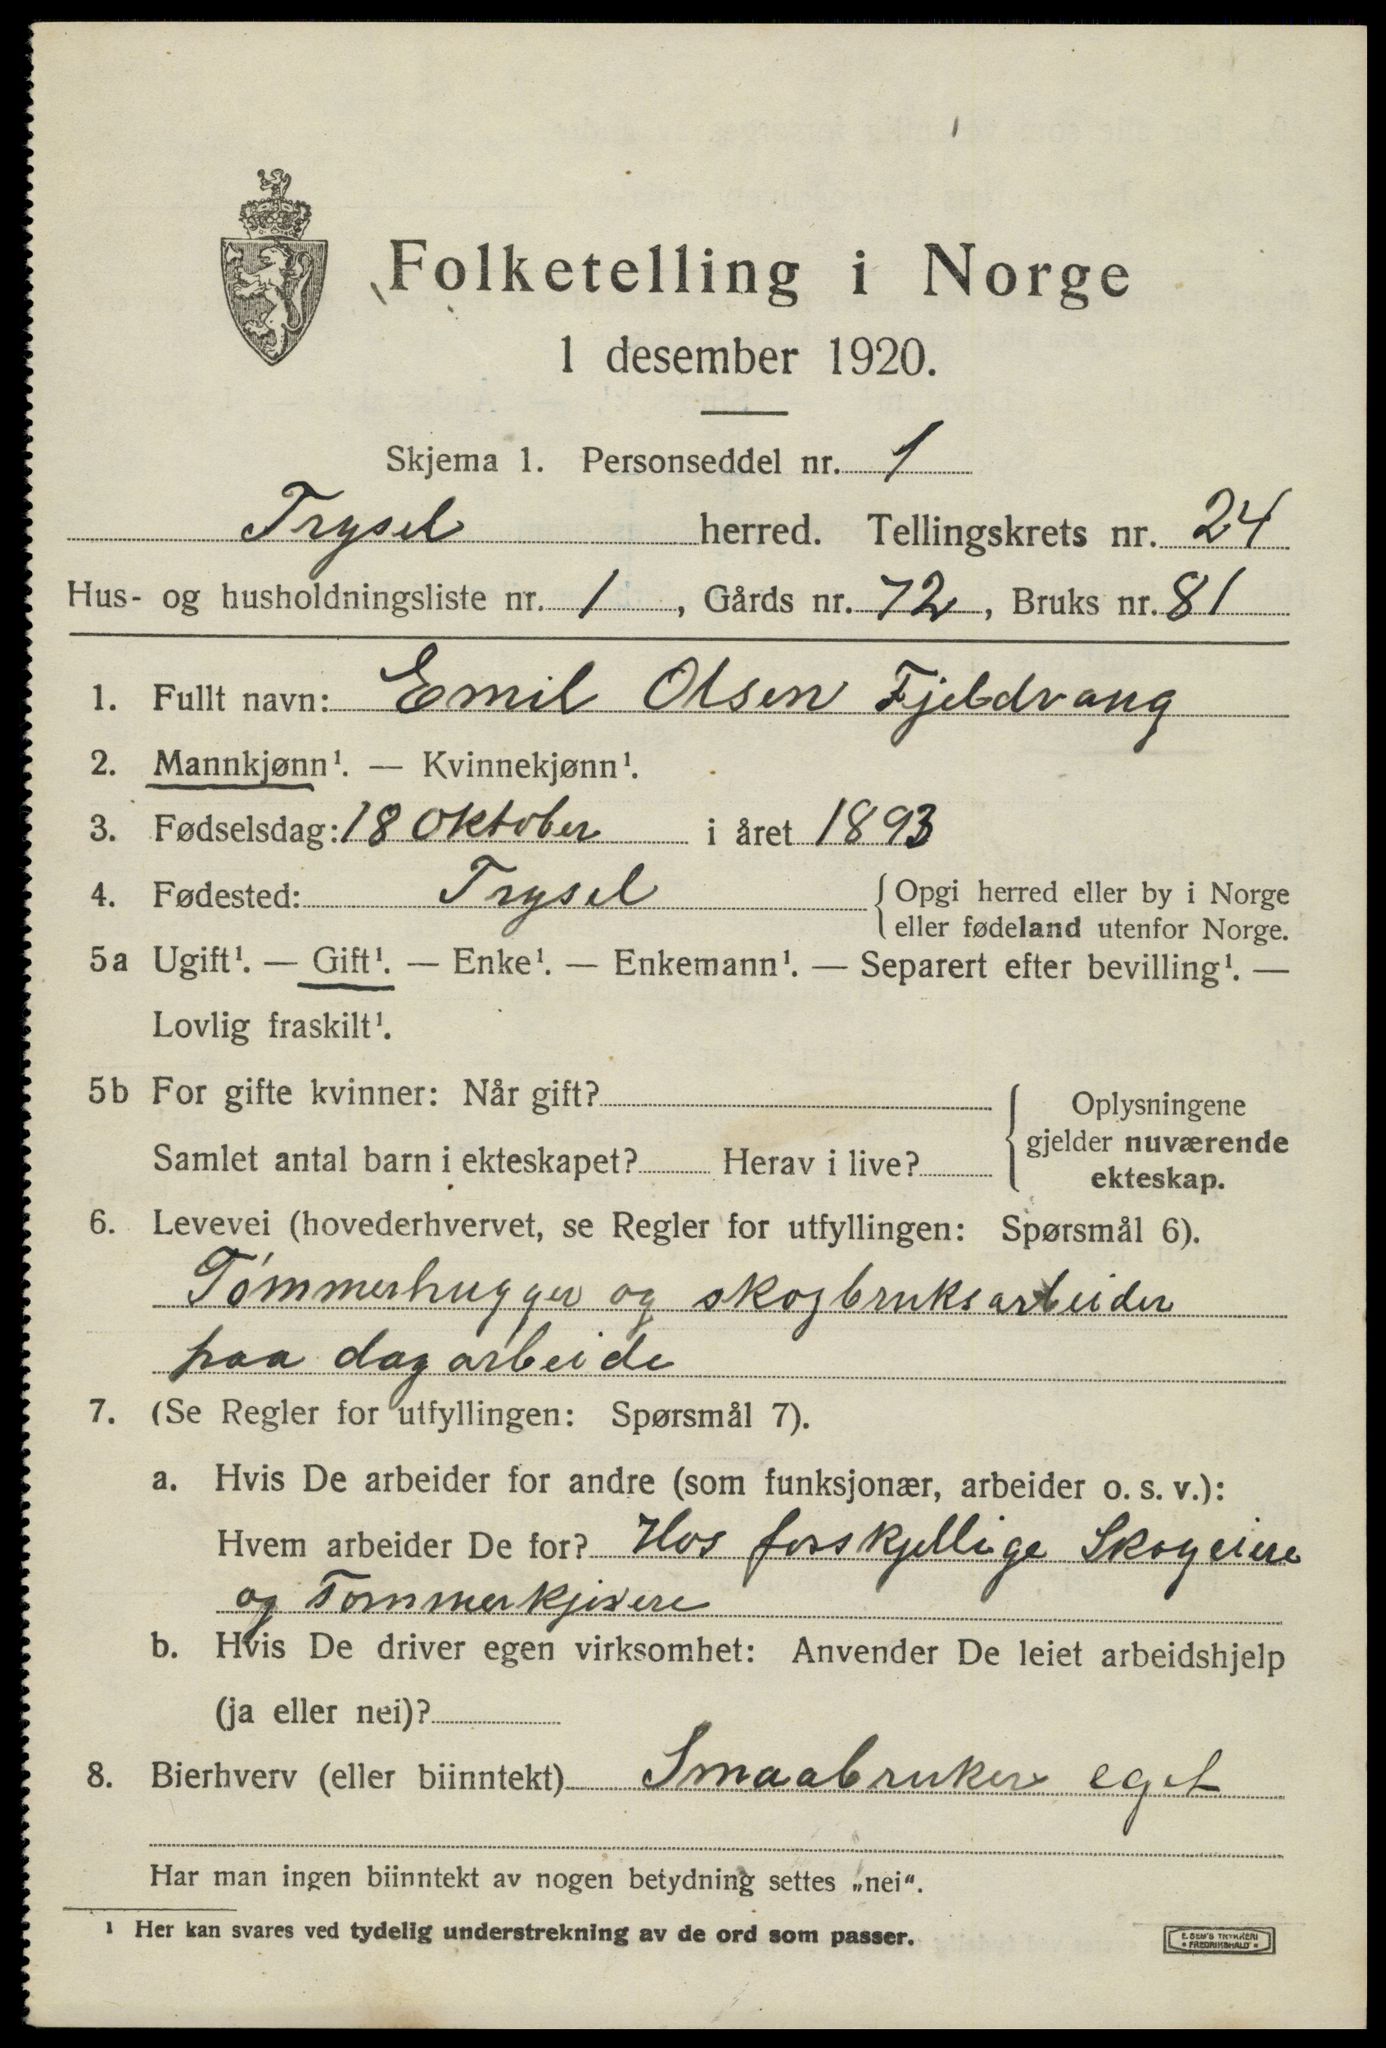 Folketelling i Norge
1 desember 1920.
Skjema 1. Personseddel nr. 1
Trysel herred. Tellingskrets nr. 24
Hus- og husholdningsliste nr. 1, Gårds nr. 72, Bruks nr. 81
1. Fullt navn: Emil Olsen Fjeldvang
2. Mannkjønn¹. — Kvinnekjønn¹.
3. Fødselsdag: 18 Oktober i året 1893
4. Fødested: Trysel { Opgi herred eller by i Norge
eller fødeland utenfor Norge.
5a Ugift¹. — Gift¹. — Enke¹. — Enkemann¹. — Separert efter bevilling¹. —
Lovlig fraskilt¹.
5b For gifte kvinner: Når gift?
Samlet antal barn i ekteskapet? Herav i live?
{ Oplysningene
gjelder nuværende
ekteskap.
6. Levevei (hovederhvervet, se Regler for utfyllingen: Spørsmål 6).
Tømmerhugger og skogbruksarbeider
paa dagarbeide
7. (Se Regler for utfyllingen: Spørsmål 7).
a. Hvis De arbeider for andre (som funksjonær, arbeider o. s. v.):
Hvem arbeider De for? Hos forskjellige Skogeiere
og Tømmerkjørere
b. Hvis De driver egen virksomhet: Anvender De leiet arbeidshjelp
(ja eller nei)?
8. Bierhverv (eller biinntekt) Smaabruker eget
Har man ingen biinntekt av nogen betydning settes „nei“.
¹ Her kan svares ved tydelig understrekning av de ord som passer.
E. SEM'S TRYKKERI
• FREDRIKSHALD •